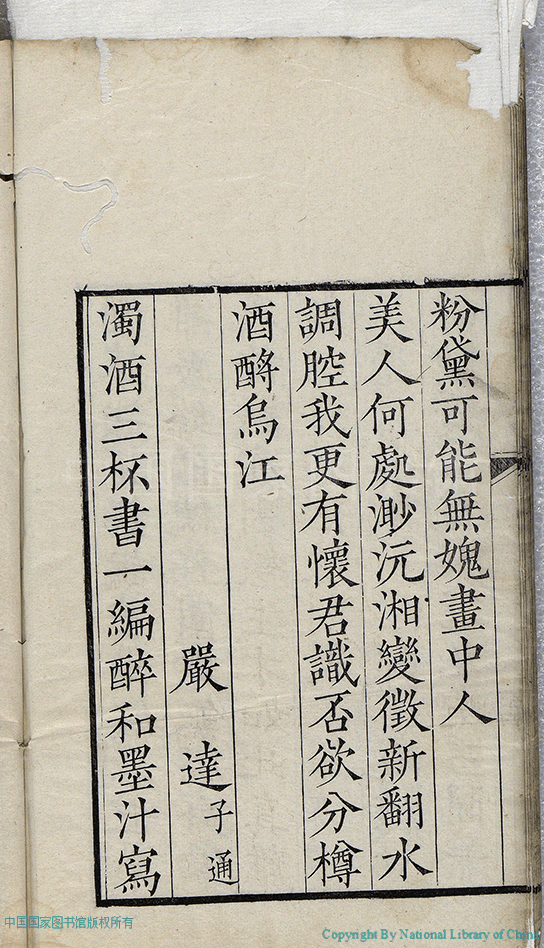 粉黛可能無媿畫中人
美人何處渺沅湘變徵新翻水
調腔我更有懷君識否欲分樽
酒酹烏江
嚴達子通
濁酒三杯書一編醉和墨汁寫
中国国家图书馆版权所有
Copyright By National Library of China